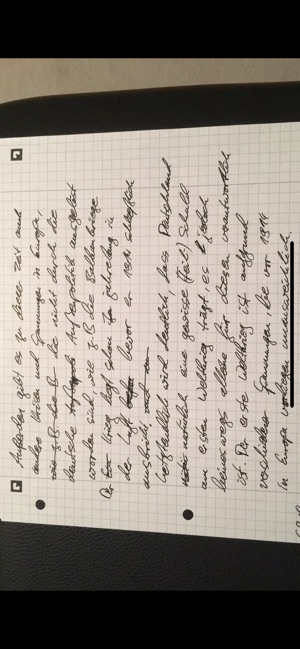 Außerdem gibt es zu dieser Zeit auch
andere Krisen und Spannungen in Europa,
die nicht durch die
deutsche Außenpolitik ausgelöst
worden sind wie z.B. die Balkankriege.
Der Krieg liegt schon jahrelang in
der Luft bevor er 1914 schließlich
ausbricht.
Letztendlich wird deutlich, dass Deutschland
natürlich eine gewisse (Teil) Schuld
am ersten Weltkrieg trägt, es jedoch
keineswegs alleine für diesen verantwortlich
ist. Der erste Weltkrieg ist aufgrund
verschiedener Spannungen, die vor 1914
in Europa vorliegen unausweichlich.